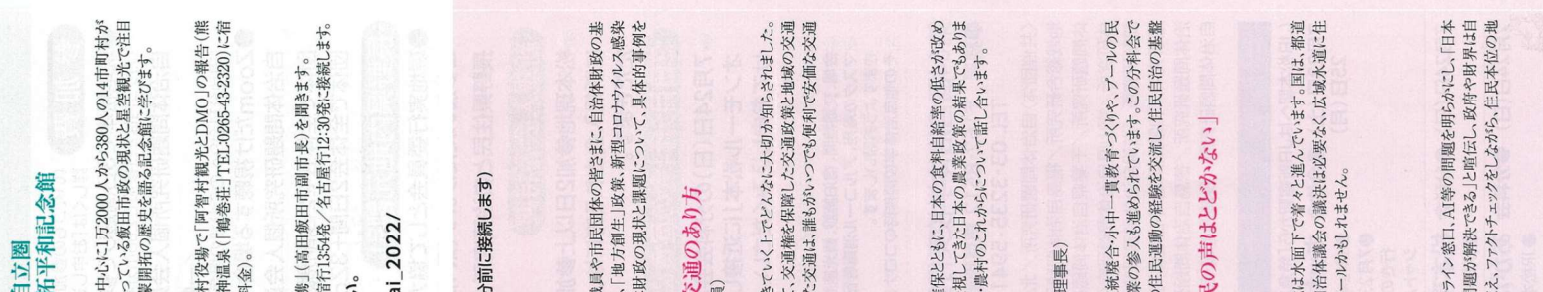 自立圏
石平和記念館
中心に1万2000人から380人の14市町村が
っている飯田市政の現状と星空観光で注目
蒙開拓の歴史を語る記念館に学びます。
村役場で「阿智村観光とDMO」の報告(熊
神温泉(「鶴巻荘」TEL:0265-43-2320)に宿
料金)。
携」(高田飯田市副市長)を聞きます。
宿行13:54発/名古屋行12:30発に接続します。
い。
ai_2022/
分前に接続します)
職員や市民団体の皆さまに、自治体財政の基
、「地方創生」政策、新型コロナウイルス感染
財政の現状と課題について、具体的事例を
交通のあり方
員)
きていく上でどんなに大切か知らされました。
に、交通権を保障した交通政策と地域の交通
た交通は、誰もがいつでも便利で安価な交通
確保とともに、日本の食料自給率の低さが改め
視してきた日本の農業政策の結果でもありま
・農村のこれからについて話し合います。
理事長)
統廃合・小中一貫教育づくりや、プールの民
業の参入も進められています。この分科会で
の住民運動の経験を交流し、住民自治の基盤
民の声はとどかない」
は水面下で着々と進んでいます。国は、都道
治体議会の議決は必要なく、広域水道に住
ールかもしれません。
ライン窓口、AI等の問題を明らかにし、「日本
問題が解決できる」と喧伝し、政府や財界は自
え、ファクトチェックをしながら、住民本位の地